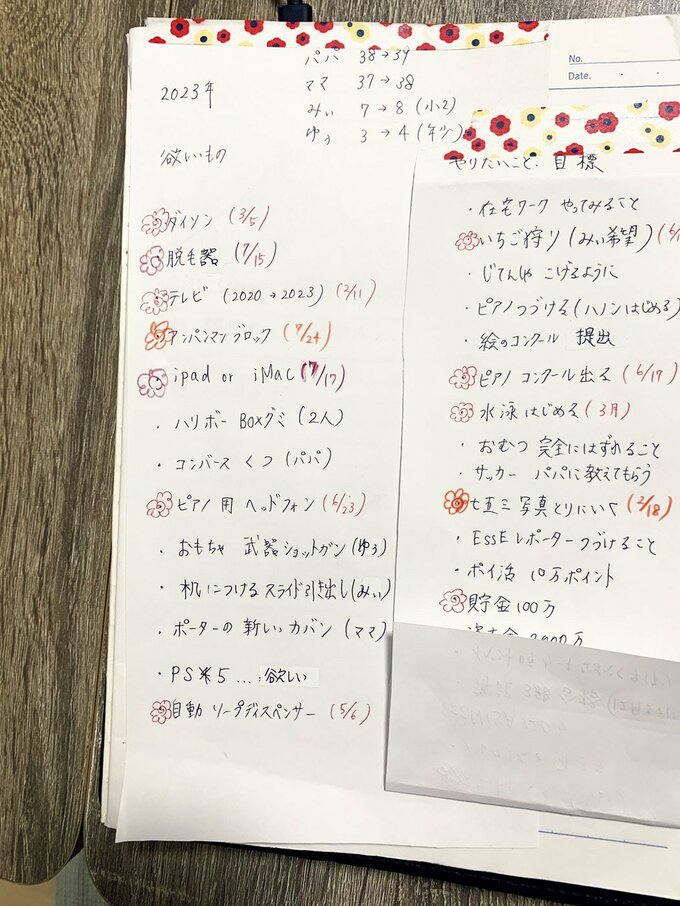 No.
Date.
パパ 38→39
ママ 37→38
みい 7→8 (小2)
ゆう 3→4 (年少)
2023年
欲しいもの
ダイソン (3/5)
脱毛器 (7/15)
テレビ (2020→2023) (2/11)
アンパンマンブロック (7/24)
ipad or iMac (7/17)
・ハリボーBOXグミ (2人)
・コンバース くつ (パパ)
ピアノ用 ヘッドフォン (6/23)
・おもちゃ 武器ショットガン (ゆう)
・机につける スライド引き出し (みい)
・ポーターの新しいカバン (ママ)
・PS 5 ...欲しい
自動 ソープディスペンサー (5/6)
やりたいこと・目標
・在宅ワーク やってみること
いちご狩り (みい希望)
・じてんしゃ こげるように
・ピアノつづける (ハノンはじめる)
・絵のコンクール 提出
ピアノ コンクール出る (6/17)
水泳はじめる (3月)
・おむつ 完全にはずれること
・サッカー パパに教えてもらう
七五三 写真とりにいく (2/18)
・ESSEレポーターつづけること
・ポイ活 10万ポイント
貯金100万